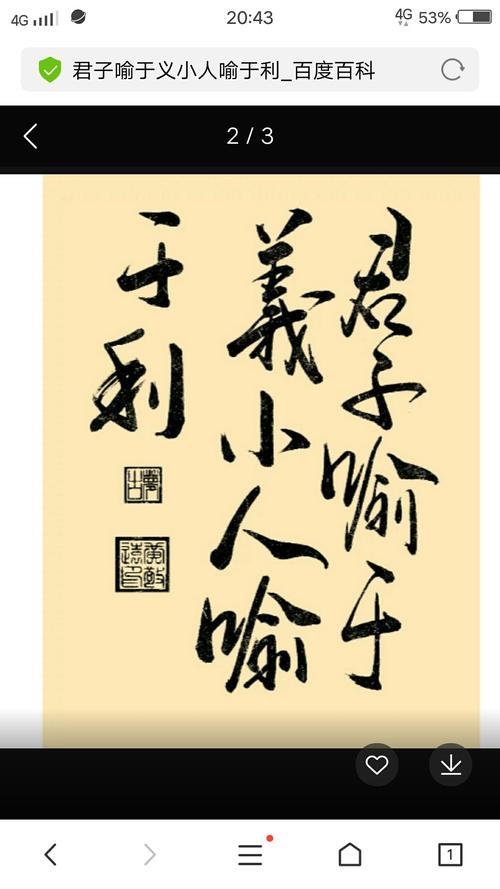 4G
20:43
4G
53%
君子喻于义小人喻于利_百度百科
2 / 3
君子喻于
義小人喻
于利
1